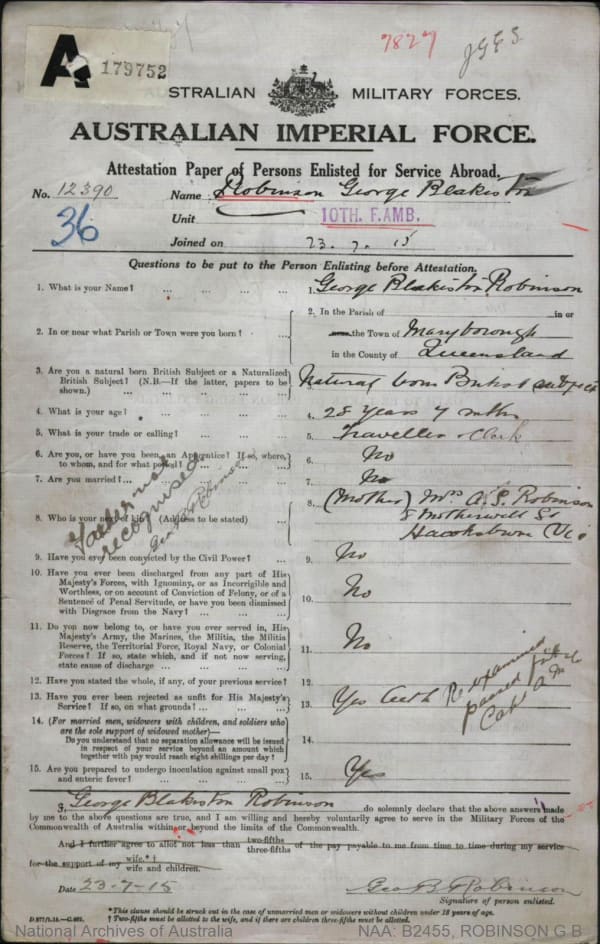 A 179752
7827
J.G.E.S.
AUSTRALIAN MILITARY FORCES.
AUSTRALIAN IMPERIAL FORCE.
Attestation Paper of Persons Enlisted for Service Abroad.
No. 12390 Name Robinson George Blakiston
36 Unit 10TH. F.AMB.
Joined on 23.7.15
Questions to be put to the Person Enlisting before Attestation.
1. What is your Name? ... ... ... ... 1. George Blakiston Robinson
2. In or near what Parish or Town were you born? ... 2. In the Parish of in or
the Town of Maryborough
in the County of Queensland
3. Are you a natural born British Subject or a Naturalized British Subject? (N.B.—If the latter, papers to be shown.) ... ... 3. Natural born British subject
4. What is your age? ... ... ... ... 4. 28 years 7 mths
5. What is your trade or calling? ... ... ... 5. Traveller & Clerk
6. Are you, or have you been, an Apprentice? If so, where, to whom, and for what period? ... ... ... 6. No
7. Are you married? ... ... ... ... 7. No
8. Who is your next of kin? (Address to be stated) ... 8. (Mother) Mrs A. S. Robinson
8 Motherwell St
Hawksburn Vic
Father not recognised
Geo B Robinson
9. Have you ever been convicted by the Civil Power? ... 9. No
10. Have you ever been discharged from any part of His Majesty's Forces, with Ignominy, or as Incorrigible and Worthless, or on account of Conviction of Felony, or of a Sentence of Penal Servitude, or have you been dismissed with Disgrace from the Navy? ... ... 10. No
11. Do you now belong to, or have you ever served in, His Majesty's Army, the Marines, the Militia, the Militia Reserve, the Territorial Force, Royal Navy, or Colonial Forces? If so, state which, and if not now serving, state cause of discharge ... ... ... 11. No
12. Have you stated the whole, if any, of your previous service? 12.
13. Have you ever been rejected as unfit for His Majesty's Service? If so, on what grounds? ... ... ... 13. Yes teeth
Re examined
passed fit
Capt
14. (For married men, widowers with children, and soldiers who are the sole support of widowed mother)—
Do you understand that no separation allowance will be issued in respect of your service beyond an amount which together with pay would reach eight shillings per day? 14.
15. Are you prepared to undergo inoculation against small pox and enteric fever? ... ... ... ... 15. Yes
I, George Blakiston Robinson do solemnly declare that the above answers made
by me to the above questions are true, and I am willing and hereby voluntarily agree to serve in the Military Forces of the
Commonwealth of Australia within or beyond the limits of the Commonwealth.
And I further agree to allot not less than two-fifths three-fifths of the pay payable to me from time to time during my service
for the support of my wife.*† wife and children.
Date 23-7-15 Geo B Robinson
Signature of person enlisted.
*This clause should be struck out in the case of unmarried men or widowers without children under 18 years of age.
† Two-fifths must be allotted to the wife, and if there are children three-fifths must be allotted.
National Archives of Australia NAA: B2455, ROBINSON G B